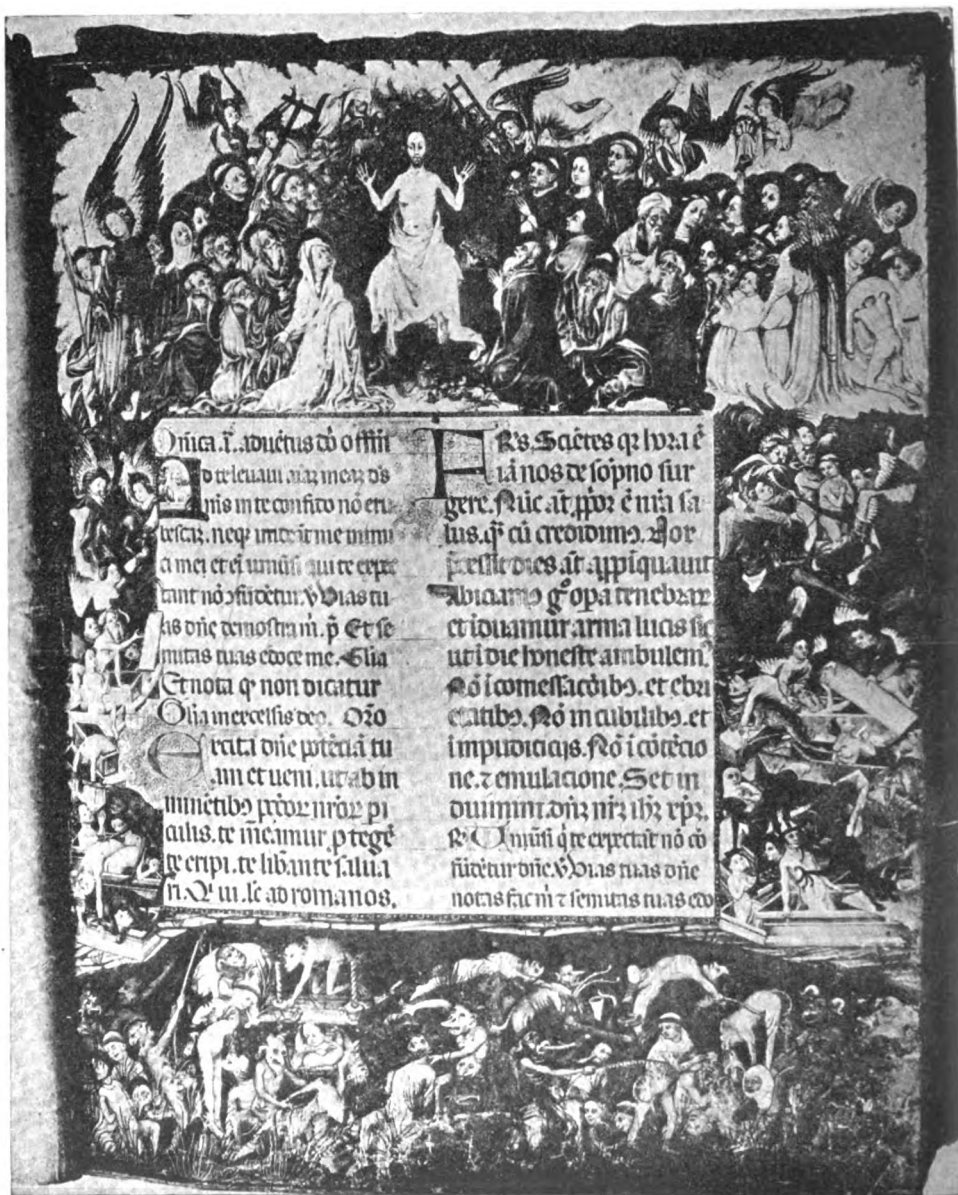 Onica. i. aduetus do offitii
Ad te leuaui aīaʒ meaʒ ds
mis in te confito nō eru
bescaʒ. neqʒ irrideāt me inimi
ci mei et eī uniūsi qui te expe
tant nō ɔfūdētur. v Vias tu
as dne demostra m. p Et se
mitas tuas edoce me. Glia
Et nota qʳ non dicatur
Glia in excelsis deo. Orō
Excita dne potēciā tu
am et ueni. ut ab in
minētibʒ pctōrꝝ nrōrꝝ pi
culis. te meamur. ptegē
te eripi. te libānte salua
ri. Qi ui. le ad romanos.
FRs. Sciētes qꝛ hora ē
iā nos de sopno sur
gere. Nūc āt. ppor ē nrā sa
lus. qʒ cū credidimʒ. Nox
pcessit dies āt appiquauit
Abiciamʒ gº opa tenebraꝝ
et iduamur arma lucis sic
ut ī die honeste ambulemʒ
Nō ī comessacōibʒ. et ebri
etatibʒ. Nō in cubilibʒ. et
impudiciciis. Nō ī cōtēcio
ne. ⁊ emulacione. Set in
duimini. dnʒ nrʒ ihʒ xpʒ.
R. Uniūsi q te expectāt nō cō
fūdētur dne. v Vias tuas dne
notas fac m ⁊ semitas tuas edo